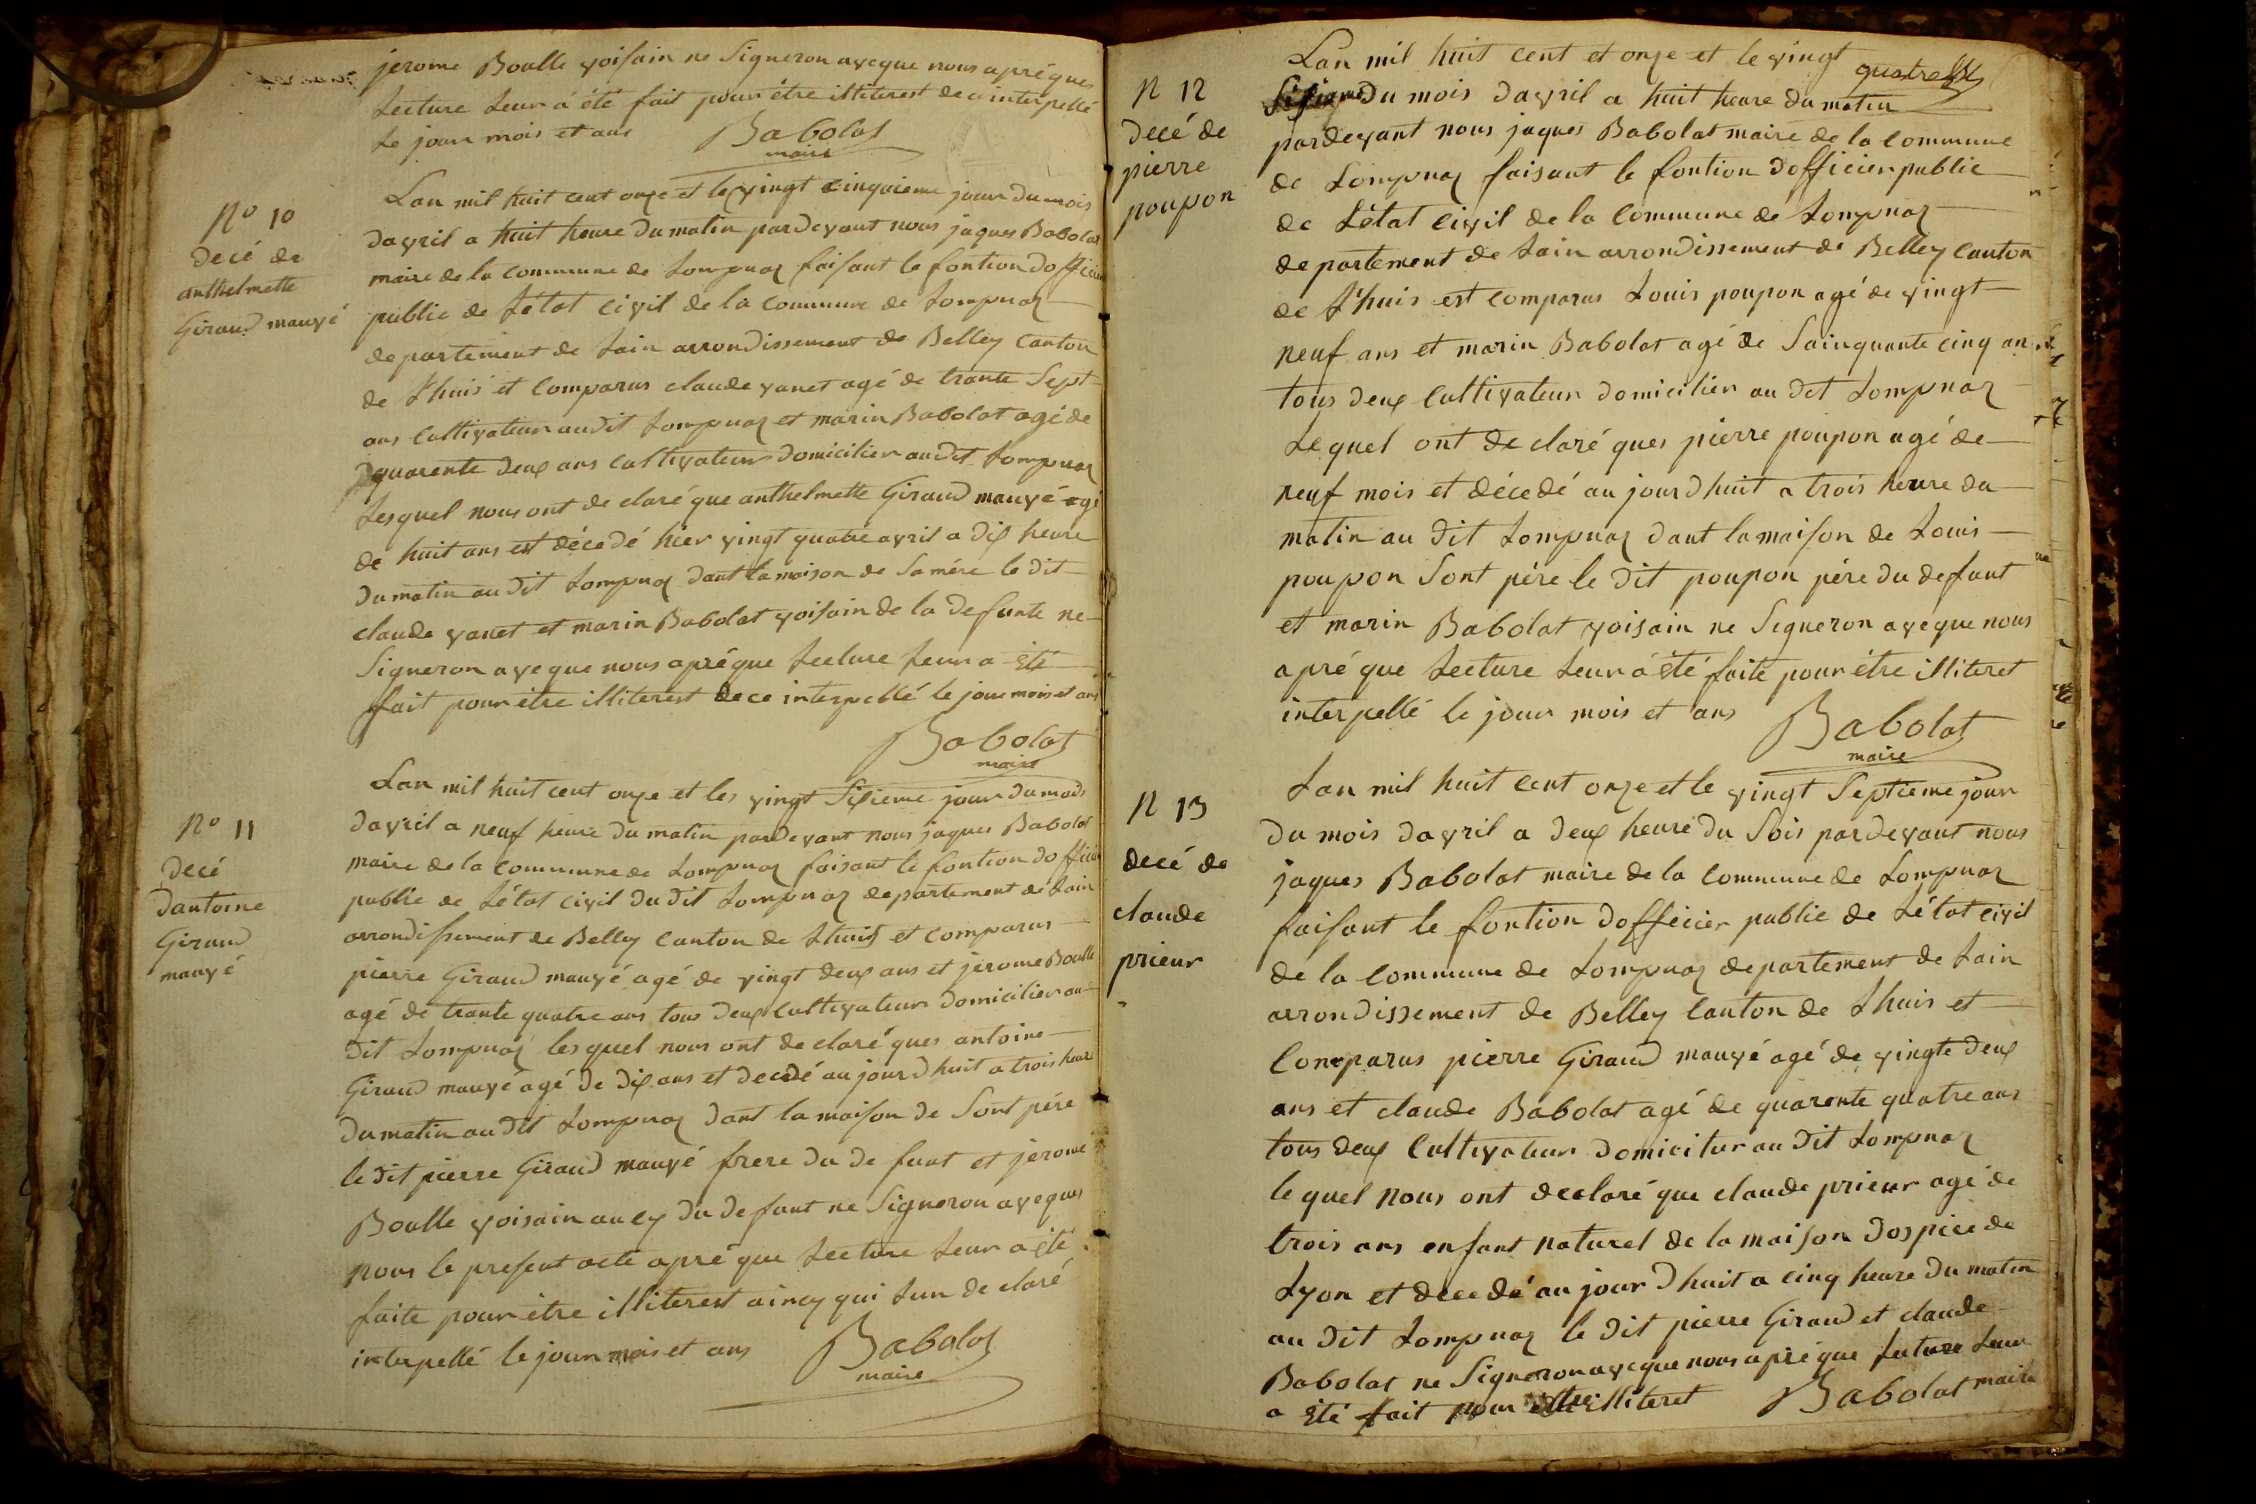 jerome Boulle voisain ne Signeron aveque nous aprégues
Lecture Leur a été fait pour étre illiterest de ce interpellé
Le jour mois et ans Babolat
maire
N° 10
decé de
anthelmette
Giraud mauvé
Lan mil huit cent onze et le vingt cinquieme jour du mois
davril a huit heure du matin pardevant nous jaques Babolat
maire de la commune de Lompnaz faisant le fontion dofficier
public de Létat civil de la commune de Lompnaz
departement de Lain arrondissement de Belley canton
de Lhuis et comparus claude vanet agé de trante Sept
ans cultivateur audit Lompnaz et marin Babolat agé de
quarente deux ans cultivateur domicilier audit Lompnaz
Lesquel nous ont de claré que anthelmette Giraud mauvé agé
de huit ans est décedé hier vingt quatre avril a dix heure
du matin au dit Lompnaz dant la maison de Sa mére le dit
claude vanet et marin Babolat voisain de la defunte ne
Signeron aveque nous aprégue Lecture Leur a été
fait pour étre illiterest de ce interpellé le jour mois et ans
Babolat
maire
N° 11
decé
dantoine
Giraud
mauvé
Lan mil huit cent onze et les vingt Sixieme jour du mois
davril a neuf heure du matin pardevant nous jaques Babolat
maire de la commune de Lompnaz faisant le fontion dofficier
public de Létat civil du dit Lompnaz departement de Lain
arrondissement de Belley canton de Lhuis et comparus
pierre Giraud mauvé agé de vingt deux ans et jerome Boulle
agé de trante quatre ans tous deux cultivateur domicilier au
dit Lompnaz lesquel nous ont de claré ques antoine
Giraud mauvé agé de dix ans et decedé au jour dhuit a trois heure
du matin au dit Lompnaz dant la maison de Sont pére
le dit pierre Giraud mauvé frere du de funt et jerome
Boulle voisain aucy du defunt ne Signeron aveques
nous le present acte apré que Lecture Leur a été
faite pour étre illiterest aincy qui Lun de claré
interpellé le jour mois et ans Babolat
maire
N 12
decé de
pierre
poupon
Lan mil huit cent et onze et le vingt quatre
du mois davril a huit heure du matin
pardevant nous jaques Babolat maire de la commune
de Lompnaz faisant le fontion dofficier public
de Létat civil de la commune de Lompnaz
departement de Lain arrondissement de Belley canton
de Lhuis est comparus Louis poupon agé de vingt
neuf ans et marin Babolat agé de Sainquante cinq ans
tous deux cultivateur domicilier au dit Lompnaz
Le quel ont de claré ques pierre poupon agé de
neuf mois et décedé au jour dhuit a trois heure du
matin au dit Lompnaz dant la maison de Louis
poupon Sont pére le dit poupon pére du defunt
et marin Babolat voisain ne Signeron aveque nous
apré que Lecture Leur a été faite pour étre illiteret
interpellé le jour mois et ans Babolat
maire
N 13
decé de
claude
prieur
Lan mil huit cent onze et le vingt Septieme jour
du mois davril a deux heure du Sois pardevant nous
jaques Babolat maire de la commune de Lompnaz
faisant le fontion dofficier public de Létat civil
de la commune de Lompnaz departement de Lain
arrondissement de Belley canton de Lhuis et
comparus pierre Giraud mauvé agé de vingte deux
ans et claude Babolat agé de quarente quatre ans
tous deux cultivateur domicitur au dit Lompnaz
le quel nous ont declaré que claude prieur agé de
trois ans enfant naturel de la maison dospice de
Lyon et decedé au jour dhuit a cinq heure du matin
au dit Lompnaz le dit pierre Giraud et claude
Babolat ne Signeron aveque nous apré que Leture Leur
a été fait pour illiteret Babolat maire